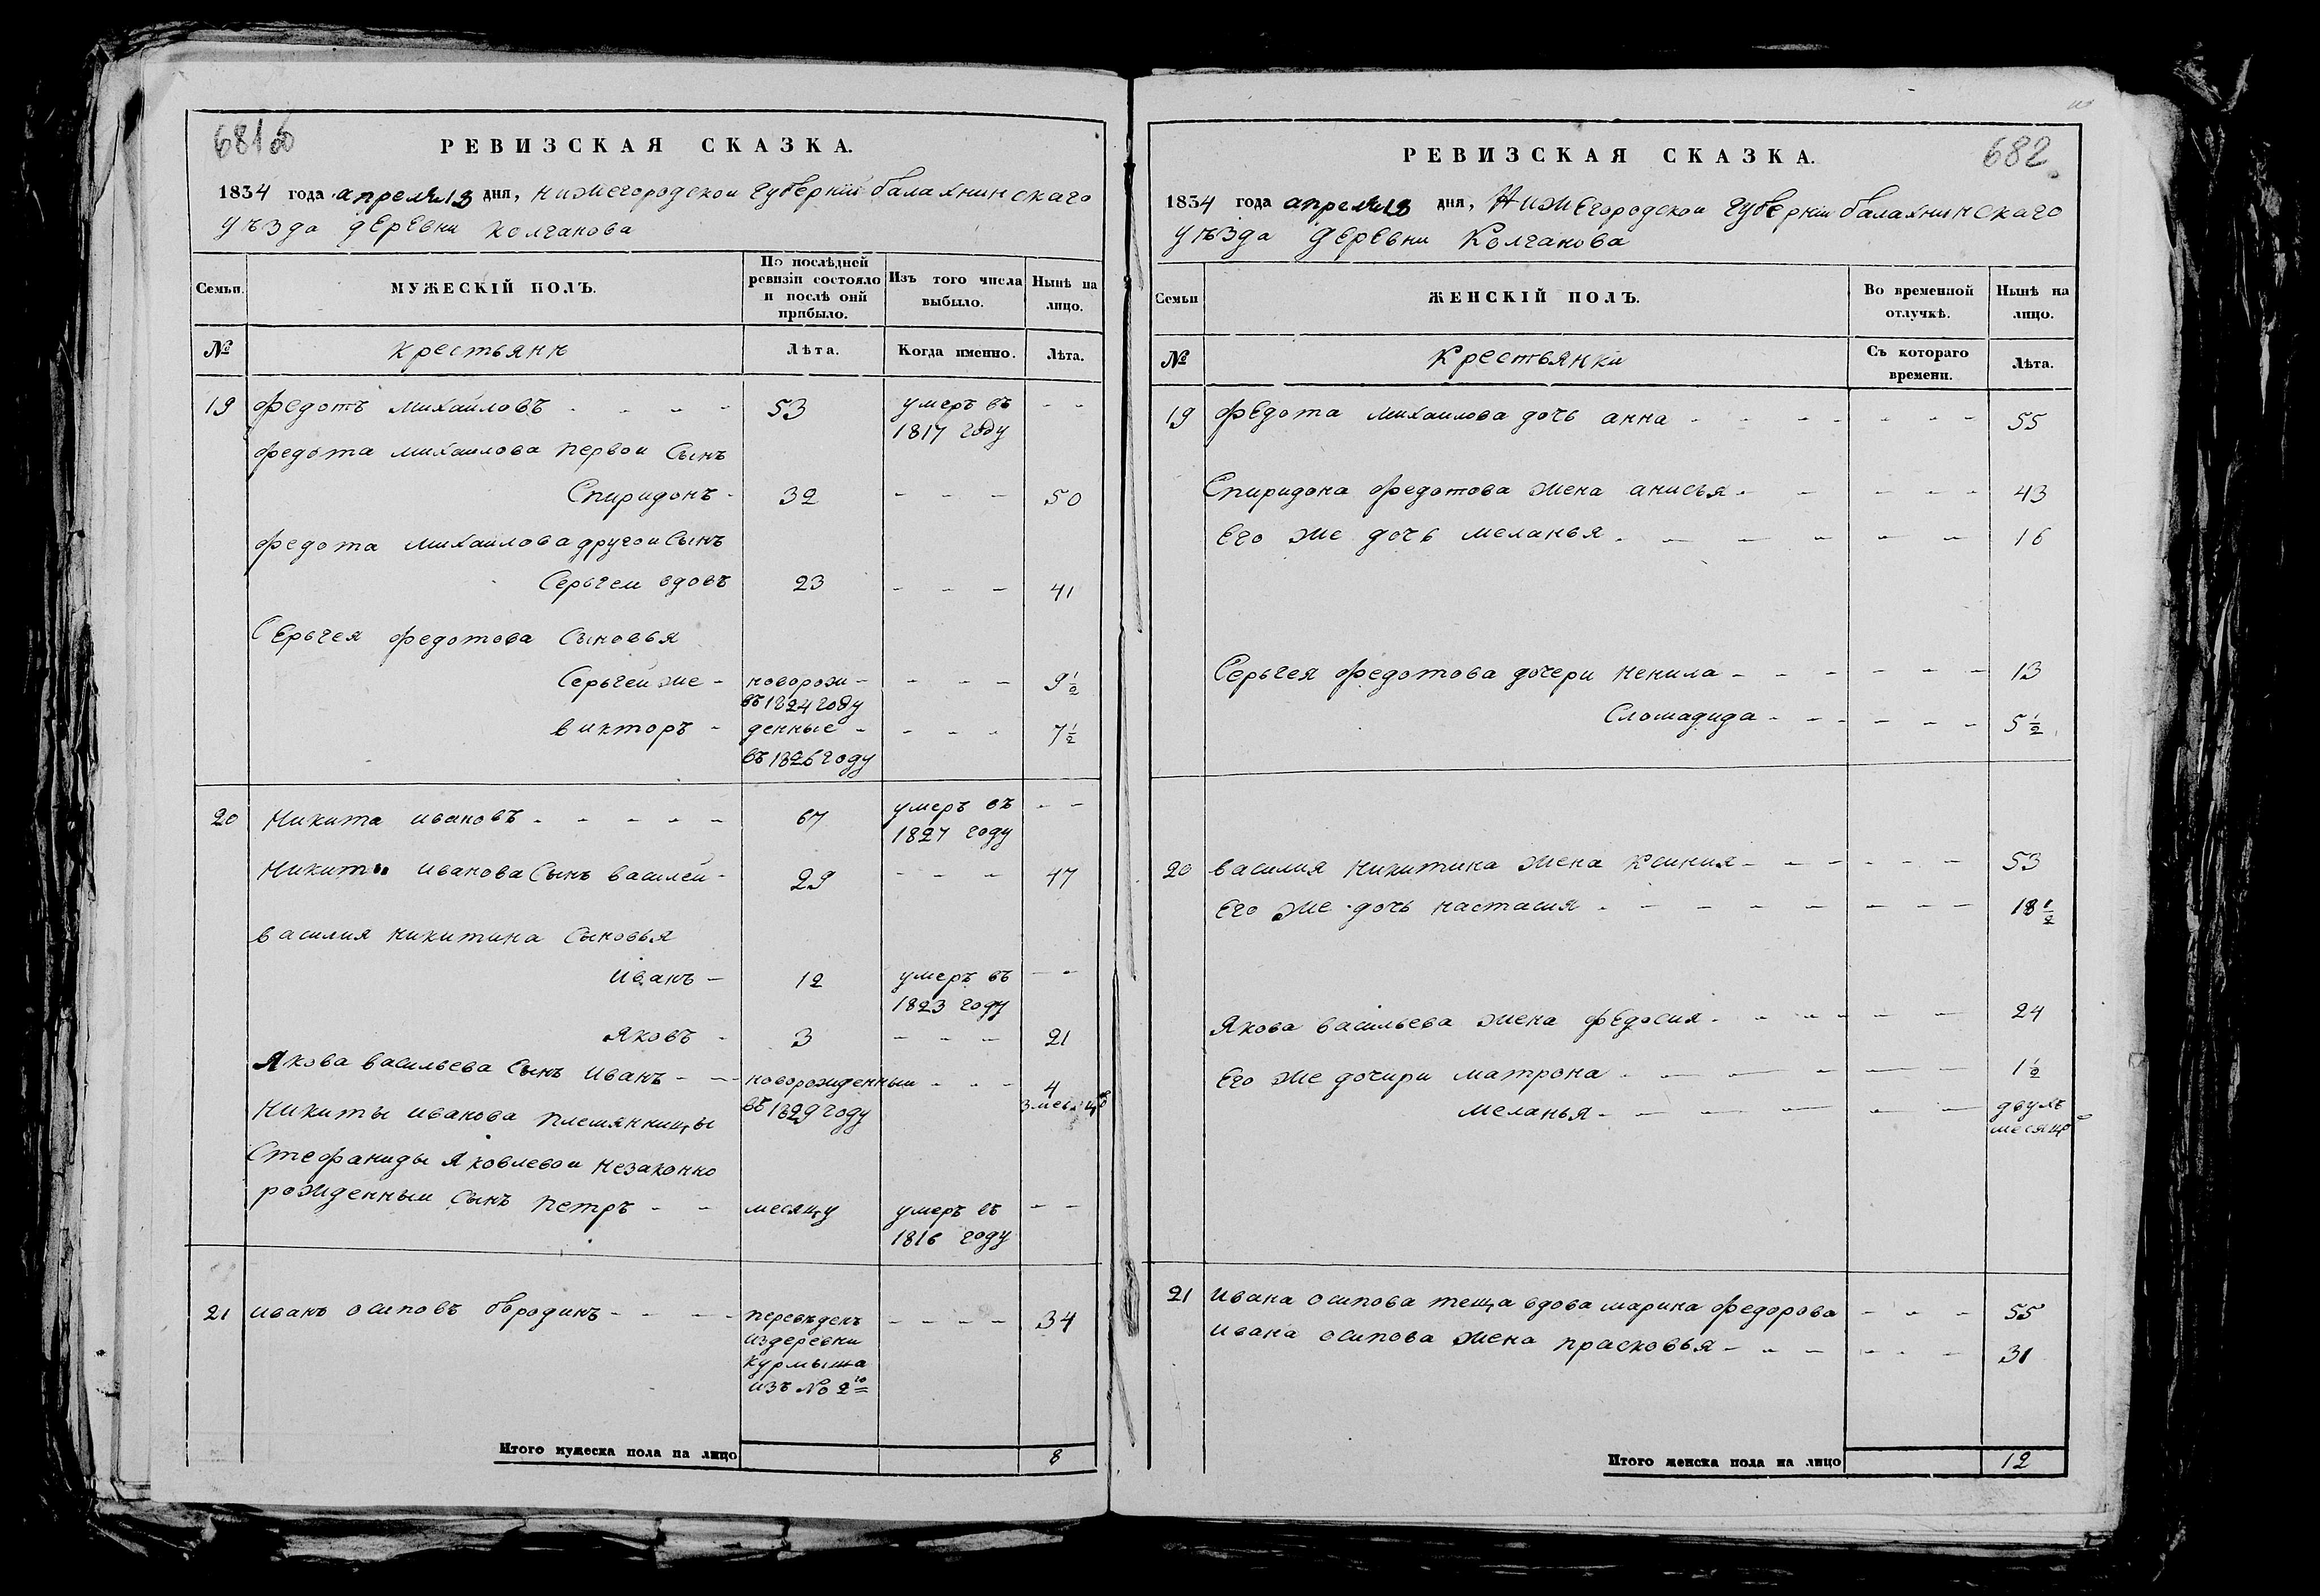 681об
РЕВИЗСКАЯ СКАЗКА.
1834 года апреля 13 дня, нижегородскои губернiи балахнинскаго
уъзда деревни Колчанова
Семьи.
МУЖЕСКІЙ ПОЛЪ.
По послѣдней ревизіи состояло и послѣ оній прибыло.
Изъ того числа выбыло.
Нынѣ на лицо.
№
крестьянн
Лѣта.
Когда именно.
Лѣта.
19 федотъ михаиловъ - - - - 53 умеръ въ - -
1817 году
федота михаилова первои Сынъ
Спиридонъ - 32 - - - 50
федота михаилова другои Сынъ
Серьгеи вдовъ 23 - - - 41
Серьгея федотова Сыновья
Серьгей же - новорож - - - - 9 1/2
въ 1824 году
викторъ - денные - - - - 7 1/2
въ 1826 году
20 Никита ивановъ - - - - - 67 умеръ въ - -
1827 году
Никиты иванова Сынъ василеи - 29 - - - 47
василия никитина Сыновья
иванъ - 12 умеръ въ - -
1823 году
яковъ - 3 - - - 21
Якова васильева Сынъ иванъ - - новорожденныи - - - 4
въ 1829 году 3 месяцов
Никиты иванова племянницы
Стефаниды Яковлевои незаконно
рожденныи Сынъ петръ - - месяцу умеръ въ - -
1816 году
21 иванъ осиповъ бородинъ - - - - переведенъ - - - - 34
издеревни
курмыша
изъ № 2го
Итого мужеска пола на лицо 8
682
РЕВИЗСКАЯ СКАЗКА.
1834 года апреля 13 дня, Нижегородскои губернiи балахнинскаго
уъзда деревни Колчанова
Семьи
ЖЕНСКІЙ ПОЛЪ.
Во временной отлучкѣ.
Нынѣ на лицо.
№
Крестьянки
Съ котораго времени.
Лѣта.
19 федота михаилова дочь анна - - - - - - - 55
Спиридона федотова жена анисья - - - - - 43
его же дочь меланья - - - - - - 16
Серьгея федотова дочери ненила - - - - - - - 13
Сломадида - - - - - - 5 1/2
20 василия никитина жена Ксиния - - - - - - 53
его же дочь настасия - - - - - - - - - 18 1/2
Якова васильева жена федосия - - - - - - 24
его же дочири матрона - - - - - - 1 1/2
меланья - - - - - - - двухъ
месяцо
21 ивана осипова теща вдова марина федорова - - - 55
ивана осипова жена прасковья - - - - - - 31
Итого женска пола на лицо 12